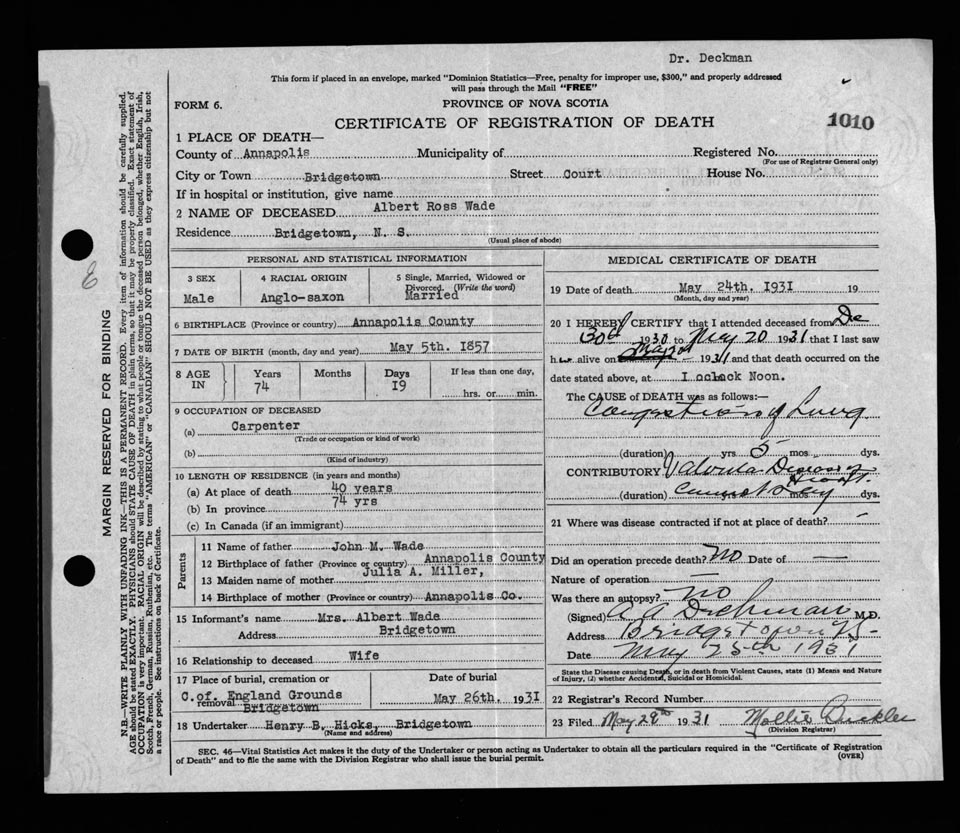 Dr. Deckman
This form if placed in an envelope, marked "Dominion Statistics—Free, penalty for improper use, $300," and properly addressed
will pass through the Mail "FREE"
FORM 6.
PROVINCE OF NOVA SCOTIA
CERTIFICATE OF REGISTRATION OF DEATH
1010
1 PLACE OF DEATH—
County of Annapolis Municipality of Registered No.
(For use of Registrar General only)
City or Town Bridgetown Street Court House No.
If in hospital or institution, give name
2 NAME OF DECEASED Albert Ross Wade
Residence Bridgetown, N. S.
(Usual place of abode)
PERSONAL AND STATISTICAL INFORMATION
3 SEX
Male
4 RACIAL ORIGIN
Anglo-saxon
5 Single, Married, Widowed or
Divorced. (Write the word)
Married
6 BIRTHPLACE (Province or country) Annapolis County
7 DATE OF BIRTH (month, day and year) May 5th. 1857
8 AGE
IN
Years
74
Months
Days
19
If less than one day,
hrs. or min.
9 OCCUPATION OF DECEASED
(a) Carpenter
(Trade or occupation or kind of work)
(b)
(Kind of industry)
10 LENGTH OF RESIDENCE (in years and months)
(a) At place of death 40 years
(b) In province 74 yrs
(c) In Canada (if an immigrant)
Parents
11 Name of father John M. Wade
12 Birthplace of father (Province or country) Annapolis County
13 Maiden name of mother Julia A. Miller,
14 Birthplace of mother (Province or country) Annapolis Co.
15 Informant's name Mrs. Albert Wade
Address Bridgetown
16 Relationship to deceased Wife
17 Place of burial, cremation or
removal C.of. England Grounds
Bridgetown
Date of burial
May 26th. 1931
18 Undertaker Henry B. Hicks, Bridgetown
(Name and address)
MEDICAL CERTIFICATE OF DEATH
19 Date of death May 24th. 1931 19
(Month, day and year)
20 I HEREBY CERTIFY that I attended deceased from De
30th 1930 to May 20 1931 that I last saw
h alive on 1931 and that death occurred on the
date stated above, at 1 oclock Noon.
The CAUSE of DEATH was as follows:
Congestion of Lung
(duration) yrs 5 mos dys.
CONTRIBUTORY Valvular Disease of
Heart.
(duration) Cannot Say mos dys.
21 Where was disease contracted if not at place of death?
Did an operation precede death? No Date of
Nature of operation
Was there an autopsy? no
(Signed) A A Deckman M.D.
Address Bridgetown NS
Date May 25th 1931
State the Disease Causing Death, or in death from Violent Causes, state (1) Means and Nature
of Injury, (2) whether Accidental, Suicidal or Homicidal.
22 Registrar's Record Number
23 Filed May 28th 1931 Mollie
(Division Registrar)
SEC. 46—Vital Statistics Act makes it the duty of the Undertaker or person acting as Undertaker to obtain all the particulars required in the "Certificate of Registration
of Death" and to file the same with the Division Registrar who shall issue the burial permit.
(OVER)
MARGIN RESERVED FOR BINDING
N.B.—WRITE PLAINLY WITH UNFADING INK—THIS IS A PERMANENT RECORD. Every item of information should be carefully supplied.
AGE should be stated EXACTLY. PHYSICIANS should STATE CAUSE OF DEATH in plain terms, so that it may be properly classified. Exact statement of
OCCUPATION is very important. RACIAL ORIGIN will be described by stating to what people or tongue the deceased person belonged, whether English, Irish,
Scotch, French, German, Russian, Ruthenian, etc. The terms "AMERICAN" or "CANADIAN" SHOULD NOT BE USED as they express citizenship but not
a race or people. See instructions on back of Certificate.